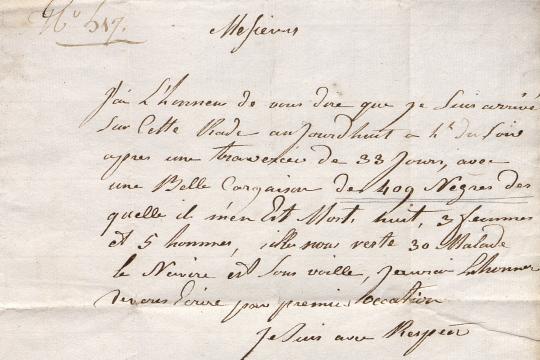 No 517.
Messieurs
J'ai L'honneur de vous dire que je Suis arrivé
Sur Cette Rade aujourdhuit a 4h du Soir
apres une traversée de 33 Jours, avec
une Belle Cargaison de 409 Negres des
quelle il m'en Est Morts huit, 3 femmes
et 5 hommes, il nous reste 30 Malade
le Navire est Sous voille, j'aurai L'honneur
de vous Ecrire par premier occation
Je Suis avec Respect